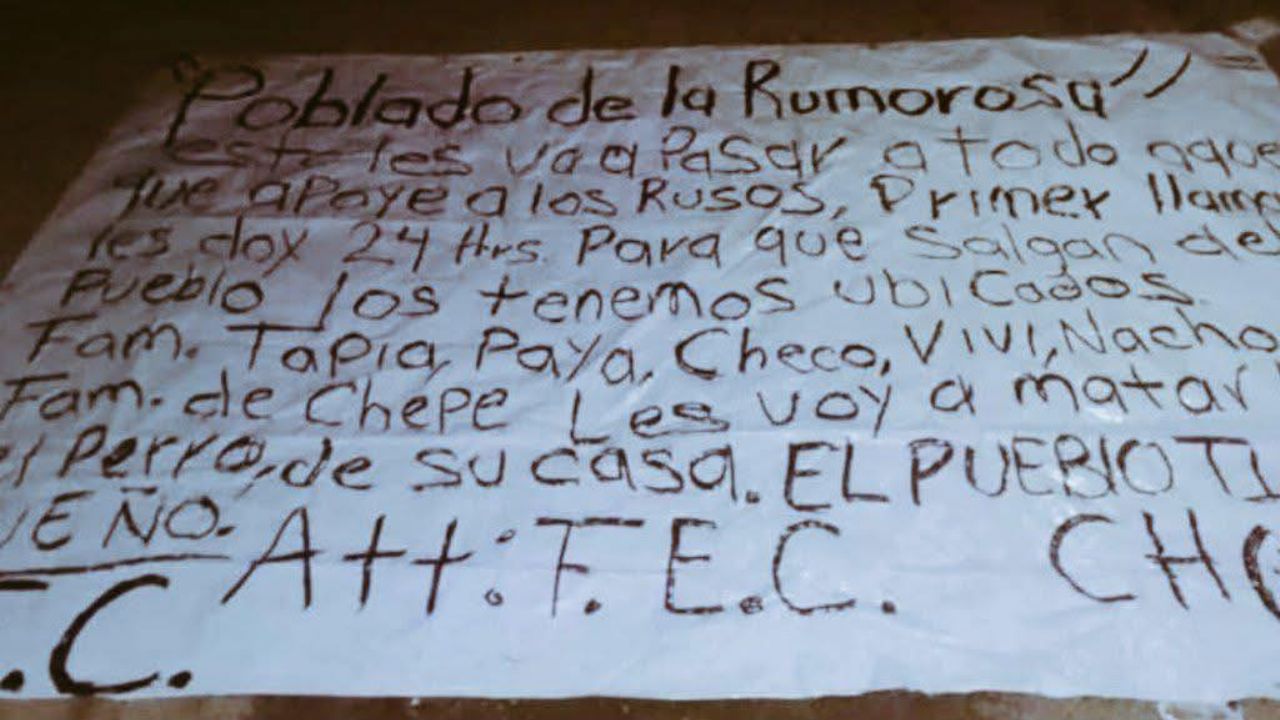 "Poblado de la Rumorosa"
esto les va a Pasar a todo aque
que apoye a los Rusos, Primer llama
les doy 24 Hrs. Para que Salgan del
Pueblo los tenemos ubicados.
Fam. Tapia, Paya, Checo, Vivi, Nacho,
Fam. de Chepe Les voy a matar
el Perro, de su casa. EL PUEBLO TI
UEÑO.
Att: F.E.C. CH
.C.